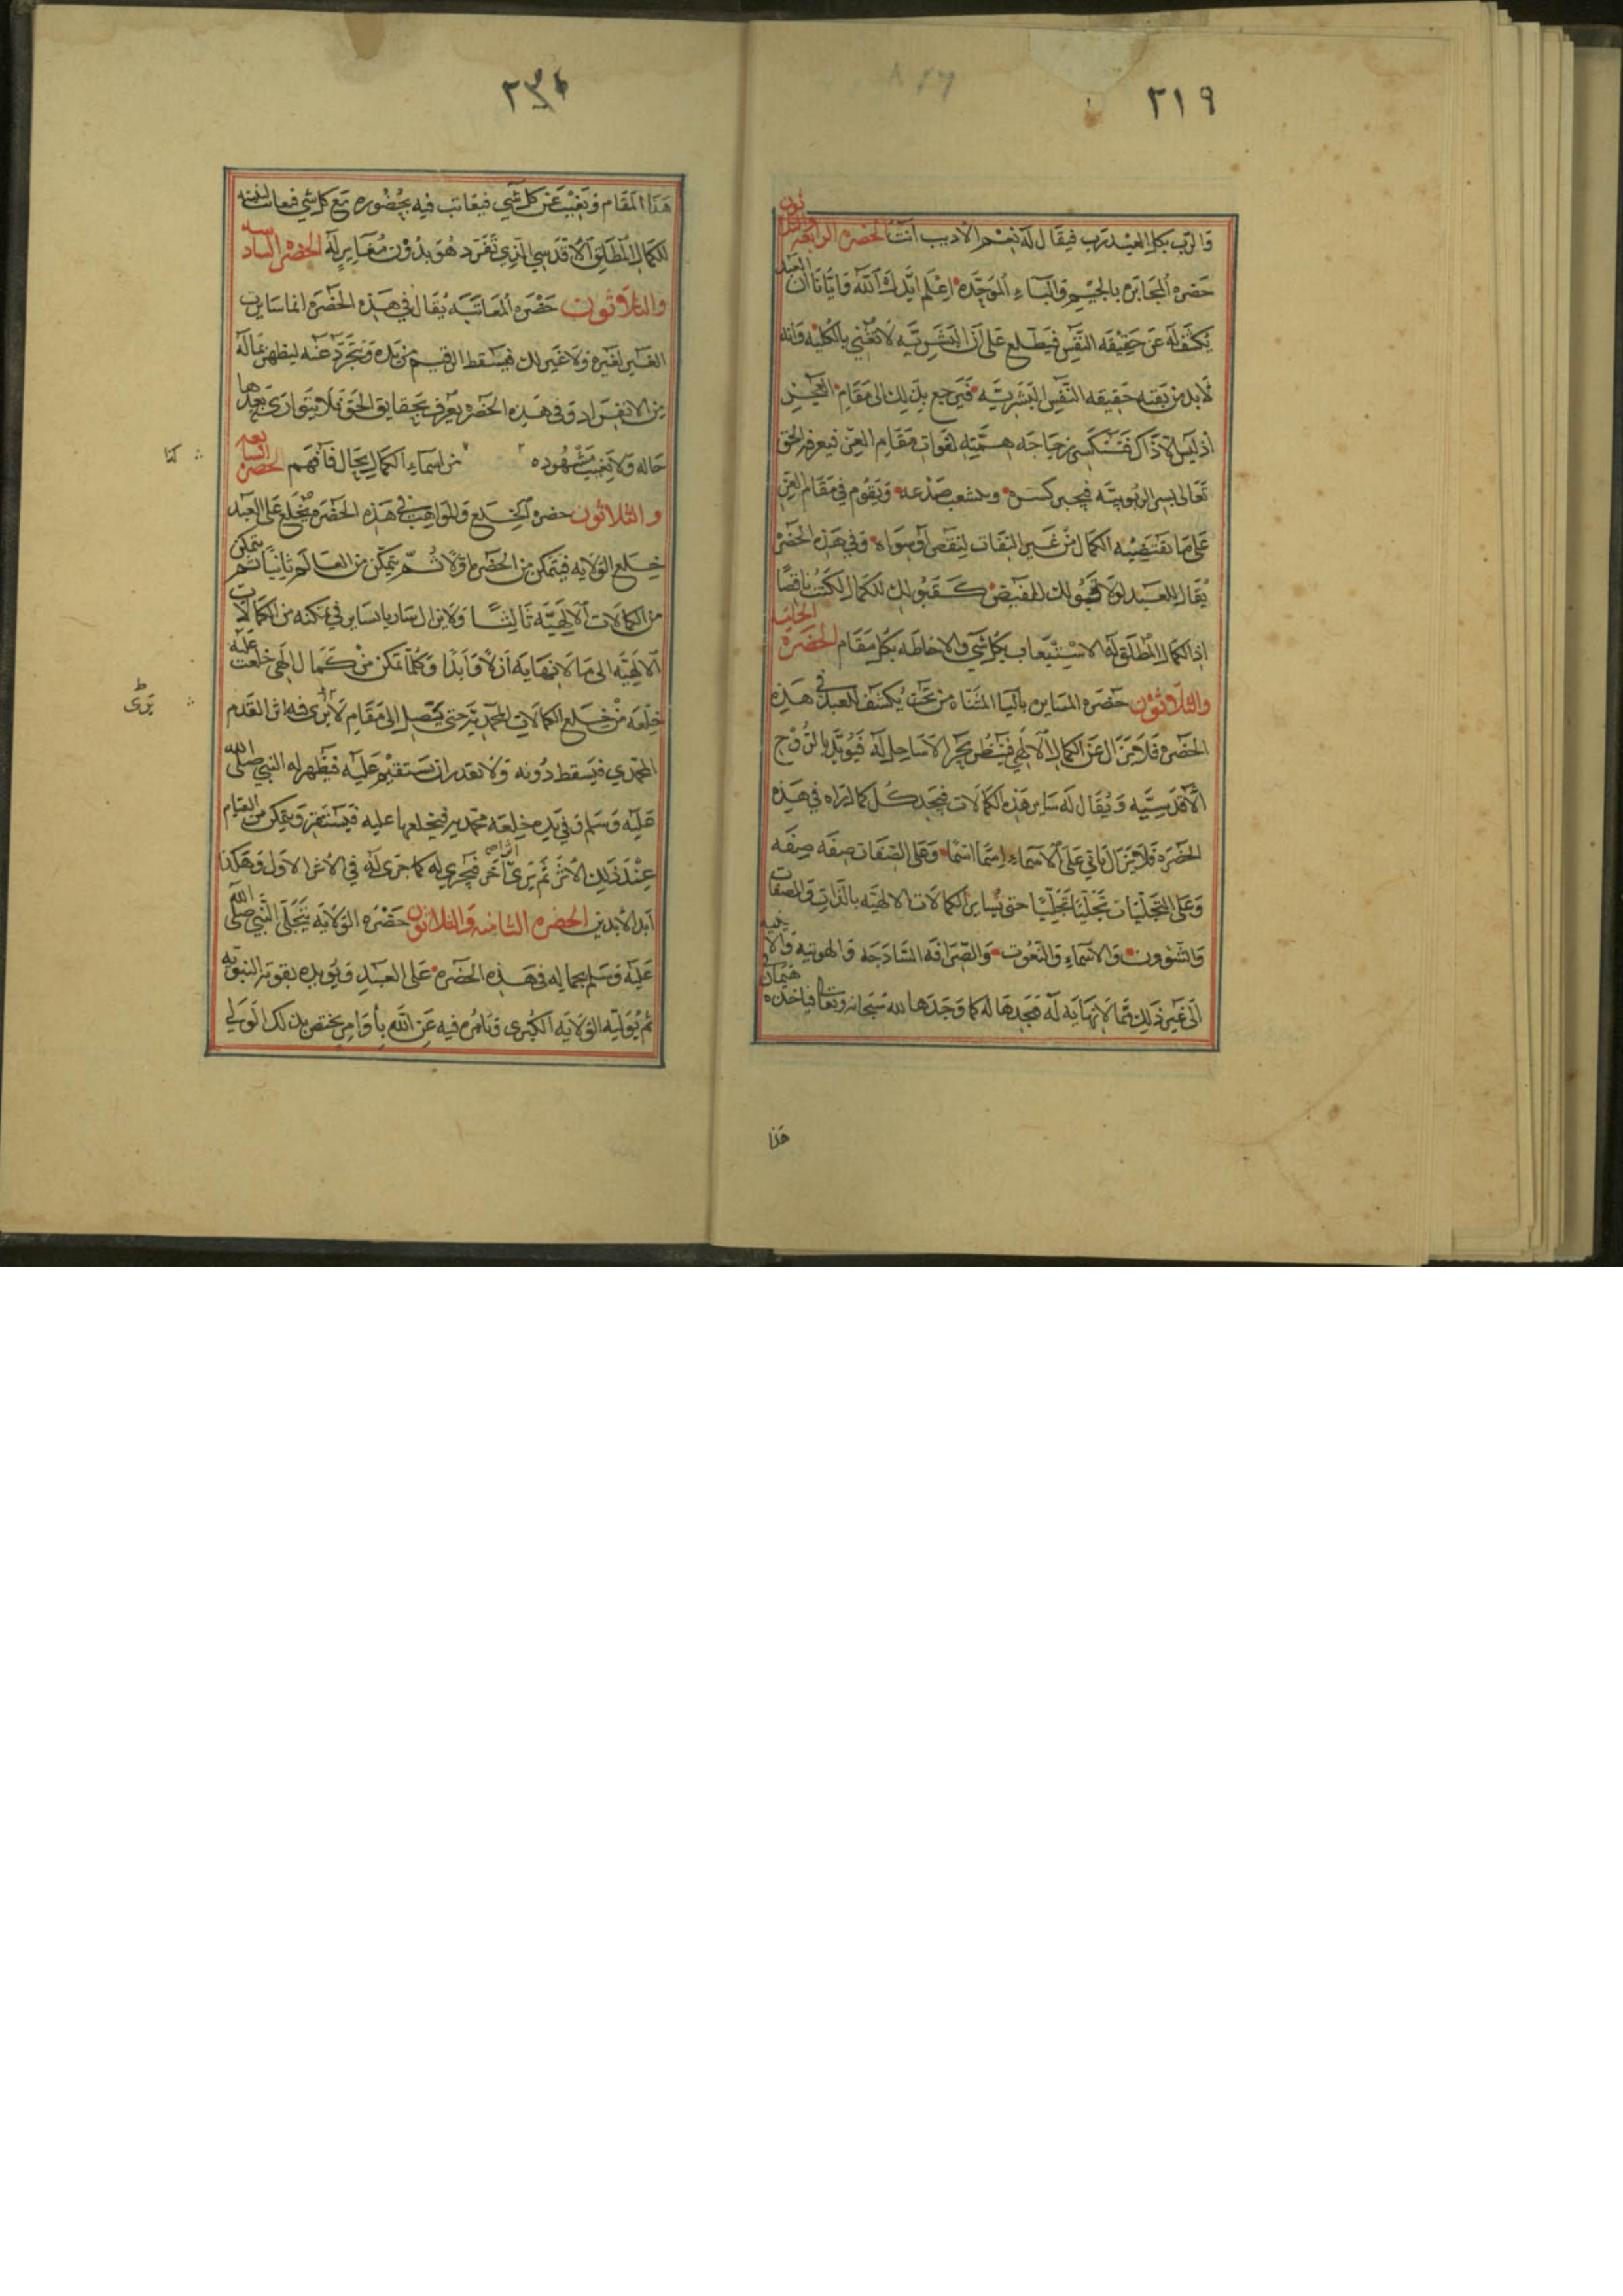 ٢١٩
والرب بكل العبد رب فيقال له نعم الأديب أنت الحضرة الرابعة والثلاثون
حضرة المجابرة بالجيم والباء الموحدة اعلم ايدك الله وايانا ان العبد
يكشف له عن حقيقة النفس فيطلع على ان البشرية لا تغني بالكلية وانه
لا بد من بقية حقيقة النفس البشرية فيرجع بذلك الى مقام العجز
اذ ليس الا ذاك فتنكسر زجاجة همته لفوات مقام العز فيعرفه الحق
تعالى بسر الربوبية فيجبر كسره ويشعب صدعه ويقوم في مقام العز
على ما تقتضيه الكمال من غير التفات لنقص او سواه وفي هذه الحضرة
يقال للعبد لولا قبولك للنقيض كقبولك للكمال لكنت ناقصا
اذ الكمال المطلق له الاستيعاب بكل شي والاحاطة بكل مقام الحضرة الخامسة
والثلاثون حضرة المسايرة باليا المثناة من تحت يكشف للعبد في هذه
الحضرة فلا يزال عن الكمال الالهي فينظر بحرا لا ساحل له فيؤيد بالروح
الأقدسية ويقال له ساير هذه الكمالات فيجد كل كمال يراه في هذه
الحضرة فلا يزال ياتي على الاسماء اسما اسما وعلى الصفات صفة صفة
وعلى التجليات تجليا تجليا حتى يساير الكمالات الالهية بالذات والصفات
والشؤون والاسماء والنعوت والصرافة الساذجة والهوية والانية
الى غير ذلك مما لا نهاية له فيجدها له كما وجدها لله سبحانه وتعالى فياخذه هيمان في
هذا
٢٣٠
هذا المقام ويغيب عن كل شي فيعاتب فيه بحضوره مع كل شي فعاتب نفسه
للكمال المطلق الاقدسي الذي تفرد هو بدون مغاير له الحضرة السادسة
والثلاثون حضرة المعاتبة يقال في هذه الحضرة انما سايرت
الغير لغيره ولا غير لك فيسقط الرقيم من يده ويتجرد عنه ليظهر بما له
من الانفراد وفي هذه الحضرة يعرف بحقايق الحق فلا يتوارى بعدها
حاله ولا يغيب مشهوده من اسماء الكمال بحال فافهم الحضرة السابعة
والثلاثون حضرة الخلع والمواهب في هذه الحضرة يخلع على العبد
خلع الولاية فيتمكن من الحضرة اولا ثم يتمكن من العالم ثانيا ثم يتمكن
من الكمالات الالهية ثالثا ولا يزال ساريا سايرا في تمكنه من الكمالات
الالهية الى ما لا نهاية له ازلا وابدا وكلما تمكن من كمال الهي خلعت عليه
خلعة من خلع الكمالات المحمدية حتى يتصل الى مقام لا يرى فيه اثر القدم
المحمدي فيسقط دونه ولا يقدر ان يستقيم عليه فيظهر له النبي صلى الله
عليه وسلم وفي يده خلعة محمدية فيخلعها عليه فيستفز ويتمكن من القيام
عند ذلك الاثر ثم يرى آخر فيجري له كما جرى له في الاثر الاول وهكذا
ابد الأبدين الحضرة الثامنة والثلاثون حضرة الولاية يتجلى النبي صلى الله
عليه وسلم بجماله في هذه الحضرة على العبد ويؤيده بقوته النبوية
ثم يوليه الولاية الكبرى ويامره فيه عن الله بأوامر يختص بذلك الولي
كذا
يرى